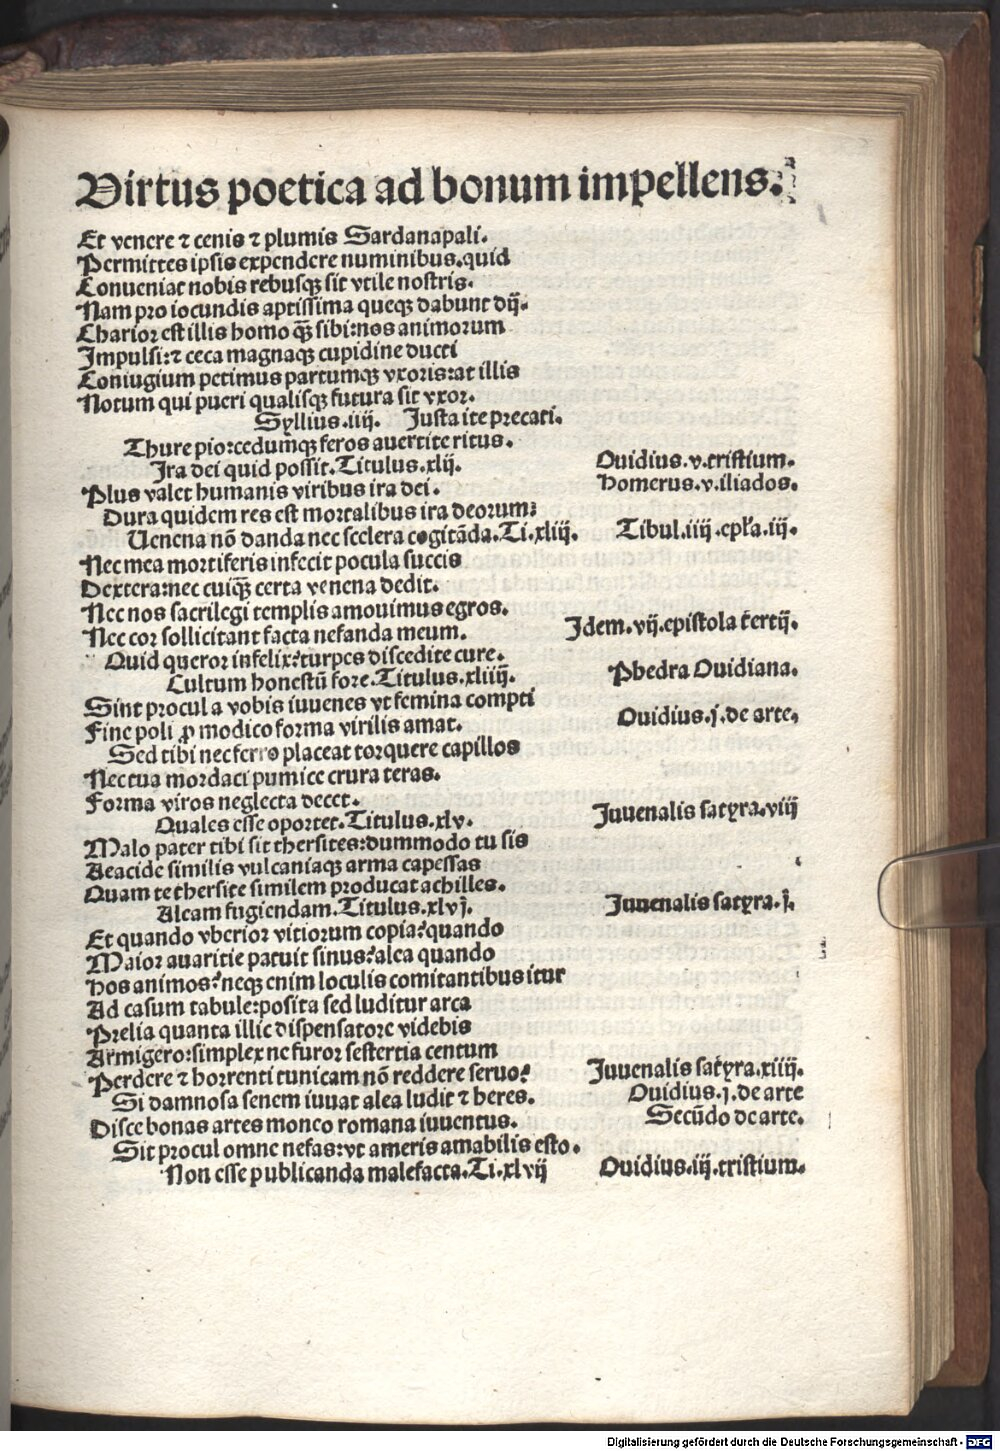 Virtus poetica ad bonum impellens.
Et venere ⁊ cenis ⁊ plumis Sardanapali.
Permittes ipsis expendere numinibus.quid
Conueniat nobis rebusqꝫ sit vtile nostris.
Nam pro iocundis aptissima queqꝫ dabunt dij.
Charior est illis homo qꝫ̃ sibi:nos animorum
Impulsi:⁊ ceca magnaqꝫ cupidine ducti
Coniugium petimus partumqꝫ vxoris:at illis
Notum qui pueri qualisqꝫ futura sit vxor.
Syllius.iiij. Justa ite precati.
Thure pio:cedumqꝫ feros auertite ritus.
Ira dei quid possit.Titulus.xlij. Ouidius.v.tristium.
Plus valet humanis viribus ira dei. Homerus.v.iliados.
Dura quidem res est mortalibus ira deorum:
Uenena nõ danda nec scelera cogitãda.Ti.xliij. Tibul.iiij.epl'a.iij.
Nec mea mortiferis infecit pocula succis
Dextera:nec cuiqꝫ̃ certa venena dedit.
Nec nos sacrilegi templis amouimus egros.
Nec cor sollicitant facta nefanda meum. Idem.vij.epistola tertij.
Quid queror infelix?turpes discedite cure.
Cultum honestũ fore.Titulus.xliiij. Phedra Ouidiana.
Sint procul a vobis iuuenes vt femina compti
Fine poli ꝓ modico forma virilis amat. Ouidius.j.de arte,
Sed tibi nec ferro placeat torquere capillos
Nec tua mordaci pumice crura teras.
Forma viros neglecta decet.
Quales esse oportet.Titulus.xlv. Juuenalis satyra.viij
Malo pater tibi sit thersites:dummodo tu sis
Aeacide similis vulcaniaqꝫ arma capessas
Quam te thersite similem producat achilles.
Aleam fugiendam.Titulus.xlvj. Juuenalis satyra.j.
Et quando vberior vitiorum copia?quando
Maior auaritie patuit sinus?alea quando
Hos animos?neqꝫ enim loculis comitantibus itur
Ad casum tabule:posita sed luditur arca
Prelia quanta illic dispensatore videbis
Armigero:simplex ne furor sestertia centum
Perdere ⁊ horrenti tunicam nõ reddere seruo? Juuenalis satyra.xiiij.
Si damnosa senem iuuat alea ludit ⁊ heres. Ouidius.j.de arte
Disce bonas artes moneo romana iuuentus. Secũdo de arte.
Sit procul omne nefas:vt ameris amabilis esto.
Non esse publicanda malefacta.Ti.xlvij Ouidius.iij.tristium.
Digitalisierung gefördert durch die Deutsche Forschungsgemeinschaft - DFG